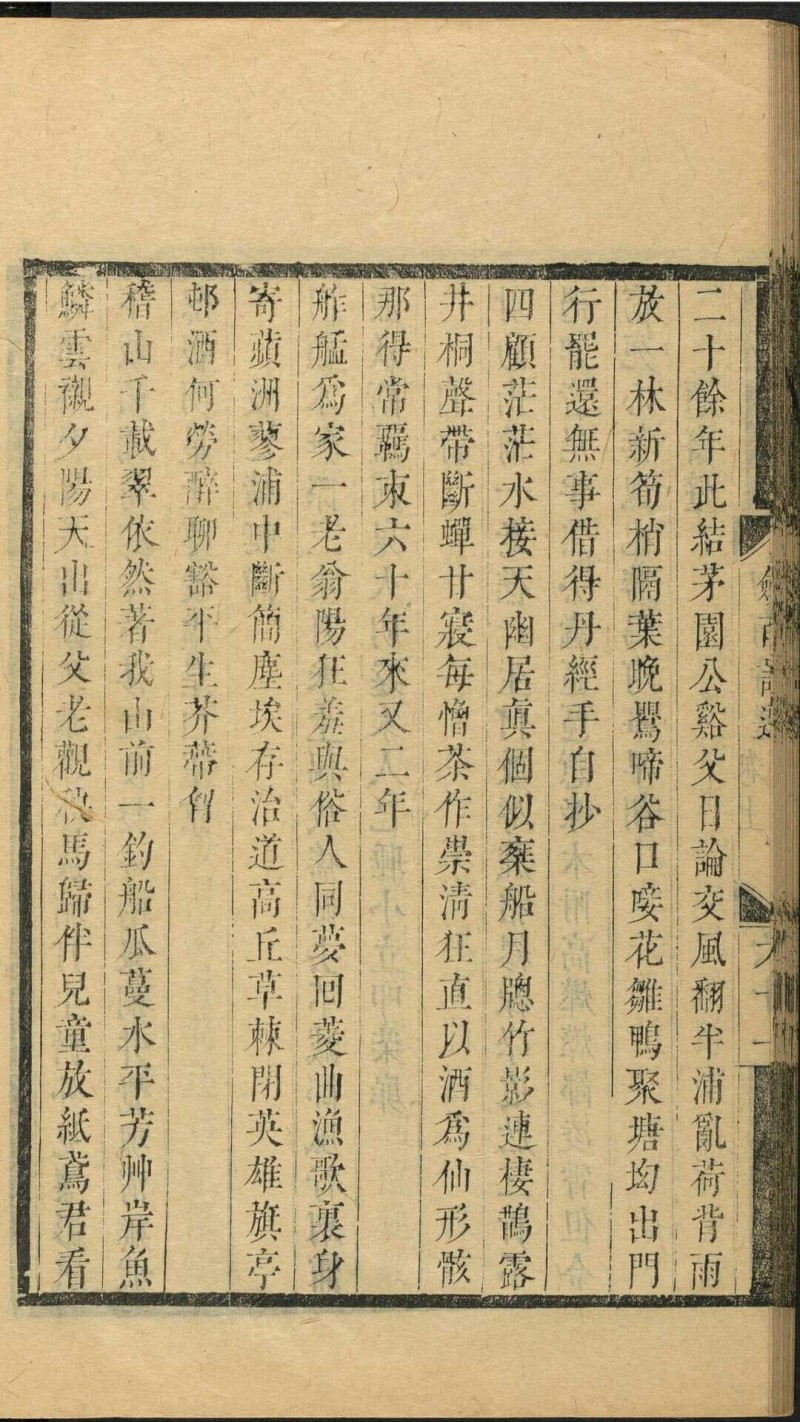 二十餘年此結茅園公谿父日論交風翻半浦亂荷背雨
放一林新筍梢隔葉晚鸎啼谷口唼花雛鴨聚塘坳出門
行罷還無事借得丹經手自抄
四顧茫茫水接天幽居真個似棄船月牕竹影連棲鵲露
井桐聲帶斷蟬甘寢每憎茶作祟淸狂直以酒爲仙形骸
那得常羈束六十年來又二年
舴艋爲家一老翁陽狂羞與俗人同夢回菱曲漁歌裏身
寄蘋洲蓼浦中斷簡塵埃存治道高丘草棘閉英雄旗亭
邨酒何勞醉聊豁平生芥蔕胷
稽山千載翠依然著我山前一釣船瓜蔓水平芳艸岸魚
鱗雲襯夕陽天出從父老觀秧馬歸伴兒童放紙鳶君看